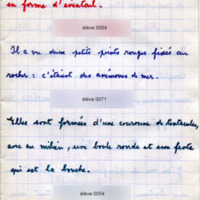 en forme d'éventail.
élève 0054
Il a vu deux petits points rouges fixés au
rocher : c'étaient des anémones de mer.
élève 0071
Elles sont formées d'une couronne de tentacules,
avec au milieu, une boule ronde et une fente
qui est la bouche.
élève 0054